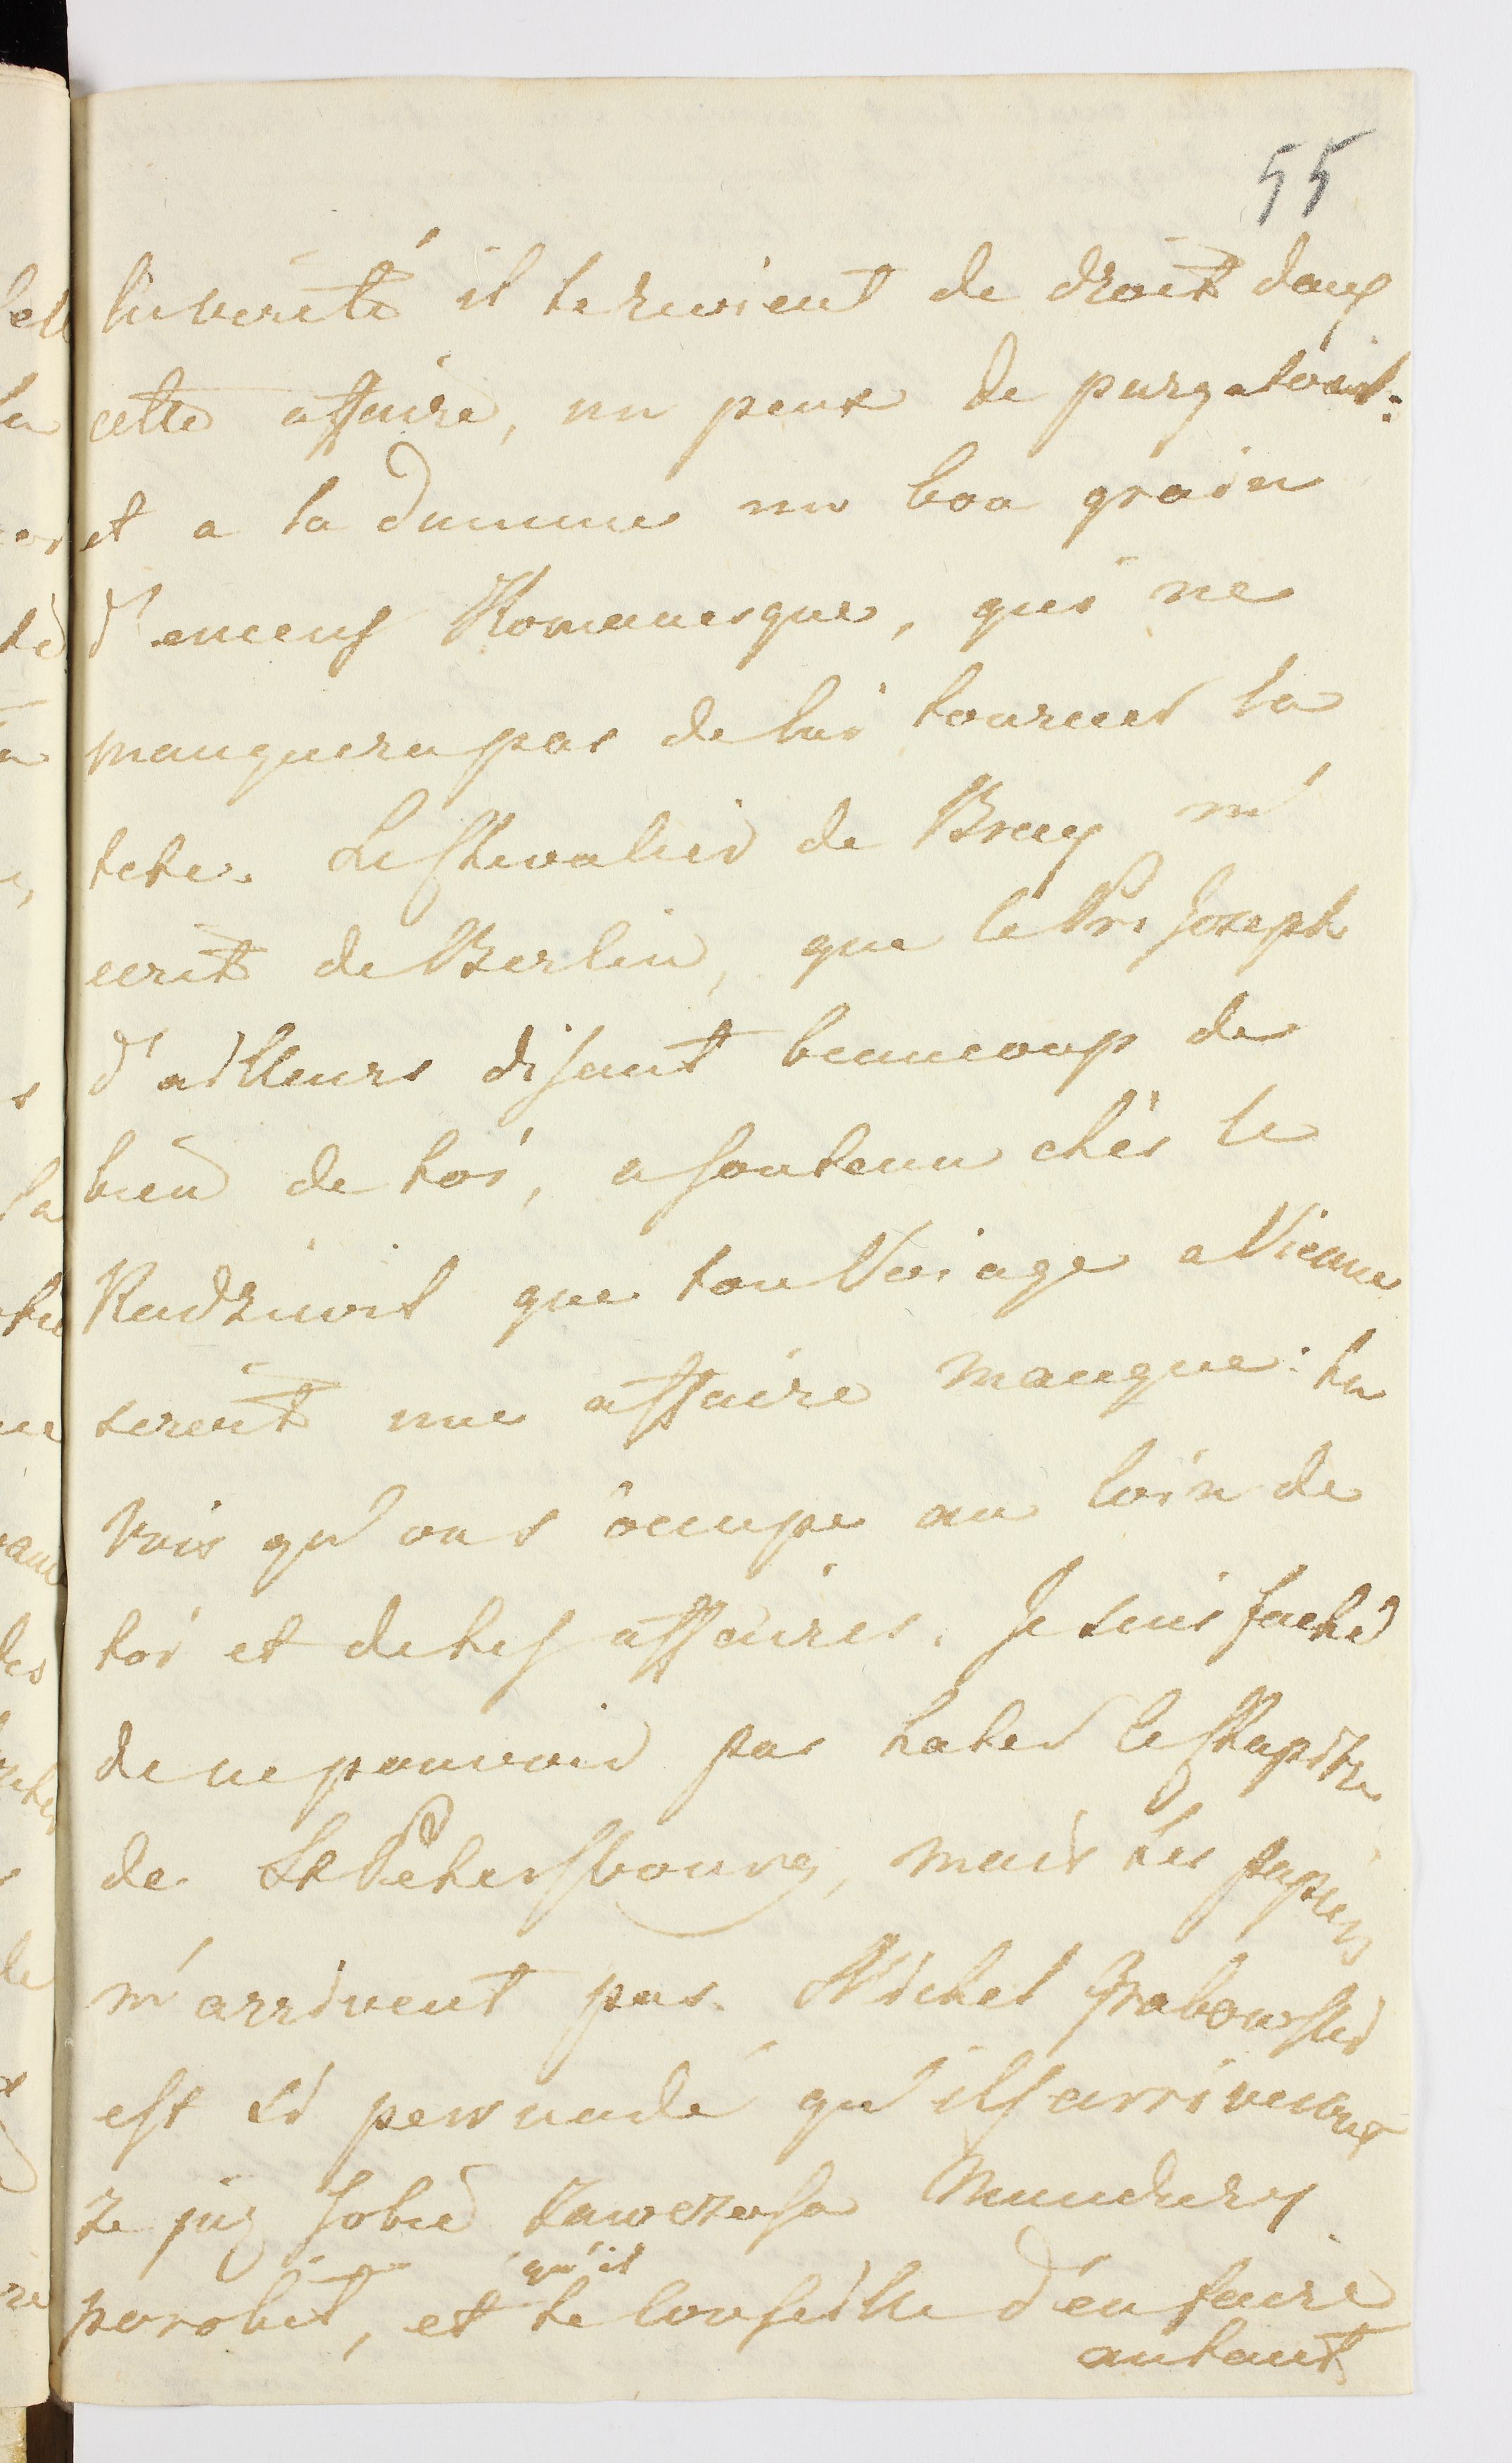 55
l'univerité il te revient de droit dans
cette affaire, un peux de purgatoire:
et a la damme un bon grain
d'encens Romanesque, qui ne
manquera pas de lui tourner la
tete. Le Chevalier de Bray m'
ecrit de Berlin, que le Pr: Joseph
d'ailleurs disant beaucoup de
bien de toi, a soutenu chés le
Radziwil que ton Voiage a Vienne
seroit une affaire manque: tu
vois qu'on s'occupe au loin de
toi et de tes affaires. Je suis faché
de ne pouvoir pas hater le Chapitre
de St Petersbourg, mais les papiers
m'arrivent pas. Michel Grabowski
est si persuadé qu'ils arriveront
ze juz sobie Kawerska Mundury
porobił, et qu'il te conseille d'en faire
autant